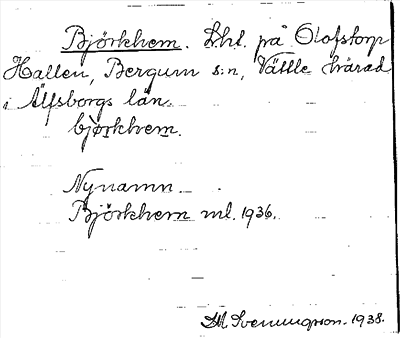 Björkhem. Lht. på Olofstorp
Hallen, Bergum s:n, Vättle härad
i Älfsborgs län.
bjo̤rkhem.
Nynamn.
Björkhem ml. 1936.
M Svenungsson. 1938.